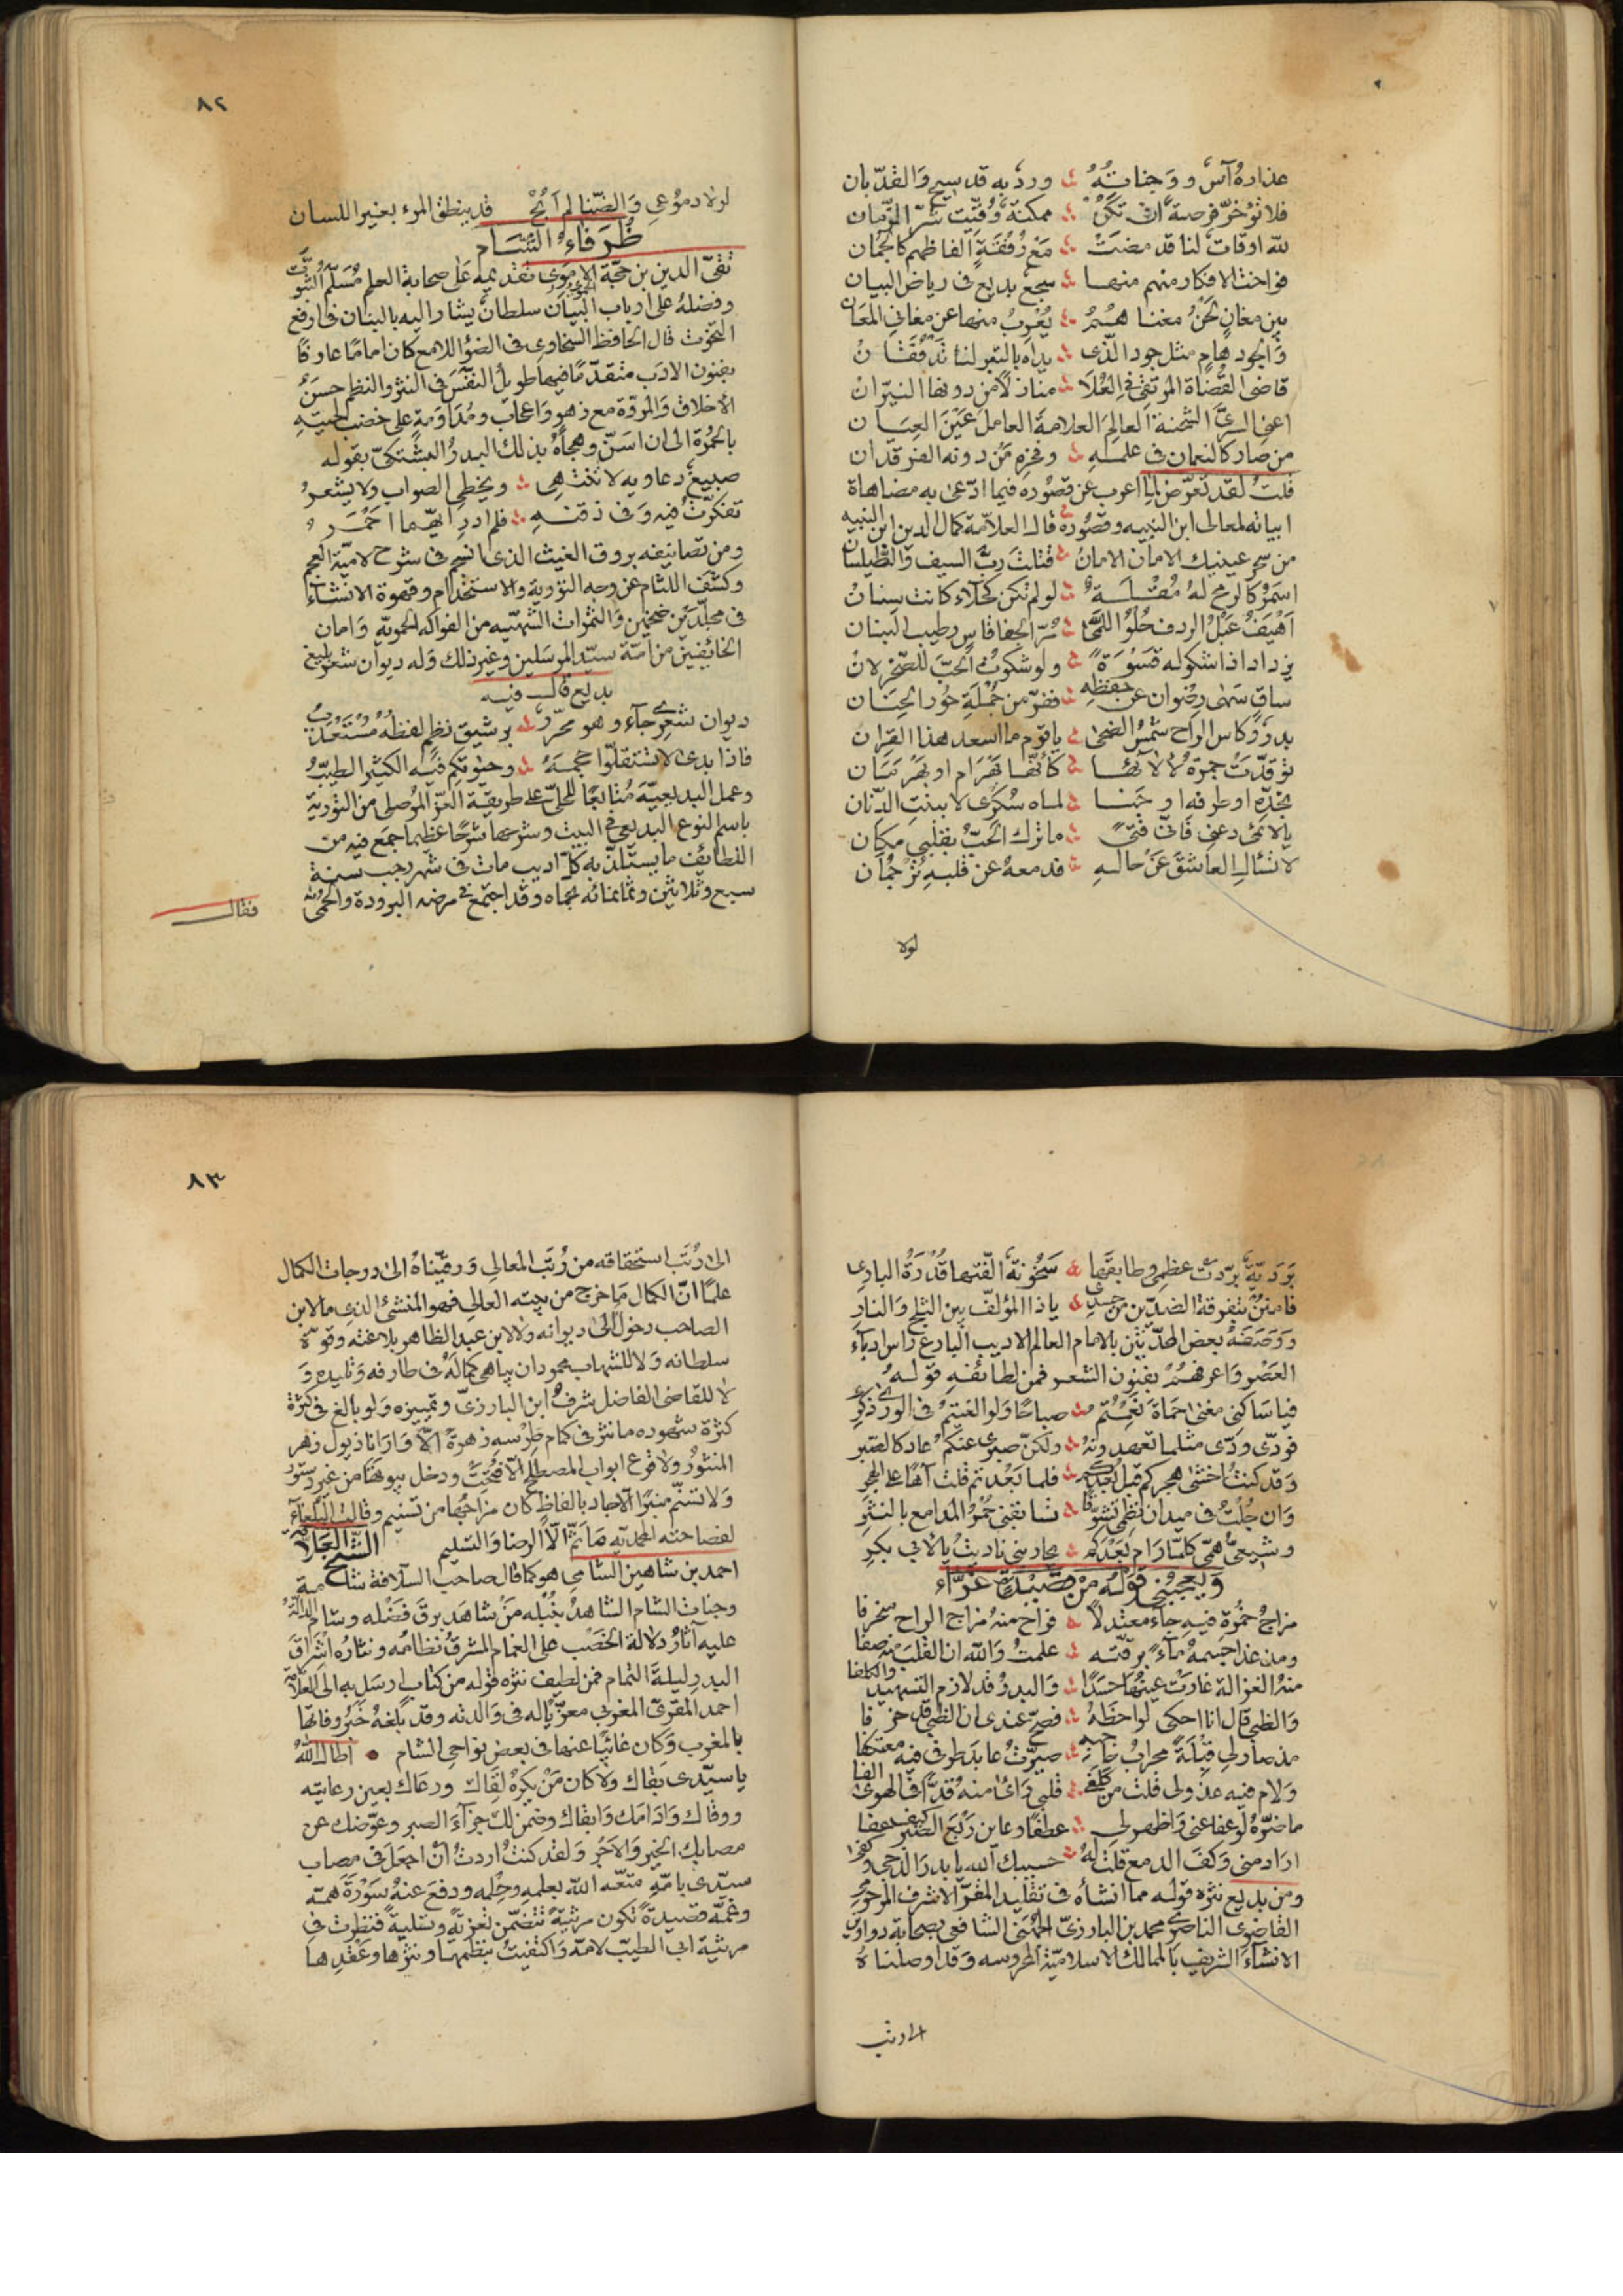 عذاره آس ووجناته ورد به قد سيج والقد بان
فلا تؤخر فرصة ان تكن ممكنة وقيت شر الزمان
لله اوقات لنا قد مضت مع رفقة الفاظهم كالجمان
فواخت الافكار منهم منها سجع بديع فى رياض البيان
بين مغان لحن مغناهم يعرب منها عن مغانى المعان
والجود هام مثل جود الذى يداه بالتبر لنا تدفقان
قاضى القضاة المرتقى فى العلا منازلا من دونها النيران
اعنى السرى الشحنة العالم العلامة العامل عين العيان
من صار كالنعمان فى علمه وفخره من دونه الفرقدان
قلت لقد تعرض لما اعرب عن قصوره فيما ادعى به مضاهاة
ابياته لمعالى ابن النبيه وقصوره قال العلامة كمال الدين ابن النبيه
من سحر عينيك الامان الامان قتلت رب السيف والطيلسان
اسمر كالرمح له مقلة لو لم تكن كحلاء كانت سنان
اهيف عبل الردف حلو اللما مر الجفا قاس رطيب البنان
يزداد اذ اشكو له قسوة ولو شكوت الحب للصخر لان
ساق سهى رضوان عن حفظه ففر من جملة حور الجنان
بدر وكاس الراح شمس الضحى يا قوم ما اسعد هذا القران
توقدت جمرة لالائها كانها بهرام او بهرمان
بخده او طرفه او جنا لماه سكرى لا ببنت الدنان
يا لائمى دعنى فانى فتى ما ترك الحب بقلبى مكان
لا تسال العاشق عن حاله فدمعه عن قلبه ترجمان
لولا
٨٢
لولا دموعى والضنا لم ابح قد ينطق المرء بغير اللسان
ظرفاء الشام
تقى الدين بن حجة الحموى تقديمه على صحابة العلم مسلم الثبوت
وفضله على ارباب البيان سلطان يشار اليه بالبنان فى ارفع
التخوت قال الحافظ السخاوى فى الضوء اللامع كان اماما عارفا
بفنون الادب متقدما فيها طويل النفس فى النثر والنظم حسن
الاخلاق والمروة مع زهو واعجاب ومداومة على خضب لحيته
بالحمرة الى ان اسن وهجاه بذلك البدر البشتكى بقوله
صبيغ دعاويه لا تنتهى ويخطى الصواب ولا يشعر
تفكرت فيه وفى ذقنه فلم ادر ايهما احمر
ومن تصانيفه بروق الغيث الذى انسجم فى شرح لامية العجم
وكشف اللثام عن وجه التورية والاستخدام وقهوة الانشاء
فى مجلدين ضخمين والثمرات الشهيه من الفواكه الحمويه وامان
الخائفين من امة سيد المرسلين وغير ذلك وله ديوان شعر بليغ
بديع قال فيه
ديوان شعرى جاء وهو محرر برشيق نظم لفظه مستعذب
فاذا بدى لا تستقلوا حجمه وحيوتكم فيه الكثير الطيب
وعمل البديعية متابعا للحلى على طريقة العز الموصلى من التورية
باسم النوع البديعى فى البيت وشرحها شرحا عظيما جمع فيه من
اللطائف ما يستلذ به كل اديب مات فى شهر رجب سنة
سبع وثلاثين وثمانمائه بحماه وقد اجتمع فى مرضه البرودة والحمى
فقال
بردية بردت عظمى وطابقها سخونة الفتها قدرة البارى
فامنن بتفرقة الضدين من جسدى ياذا المؤلف بين الثلج والنار
ووصفه بعض المحدثين بالامام العالم الاديب البارع راس ادباء
العصر واعرفهم بفنون الشعر فمن لطائفه قوله
فيا ساكنى مغنى حماة نعمتم صباحا ولو الغيتم فى الورى ذكرى
فودى ودى مثلما تعهدونه ولكن صبرى عنكم عاد كالصبر
وقد كنت اخشى هجركم قبل بعدكم فلما بعدتم قلت آها على الهجر
وان جلت فى ميدان نظمى تشوقا تسابقنى حمر المدامع بالنثر
وشيعى همى كلما رام بعدكم يحاربنى ناديت يا لابى بكر
ويعجبنى قوله من قصيدة غراء
مزاج خمرة فيه جاء معتدلا فراح منه مزاج الراح منحرفا
ومذ غدا جسمه ماء برقته علمت والله ان القلب منه صفا
منه الغزالة غارت عينها حسدا والبدر قد لازم التسهيد والكلفا
والظبى قال انا احكى لواحظه فصح عندى ان الظبى قد خرفا
مذ صار لى قبلة محراب حاجبه صيرت عابد طرفى فيه معتكفا
ولام فيه عذولى قلت من كلفى قلبى راى منه قدا فى الهوى الفا
ما ضره لو عفا عنى واظهر لى عطفا وعاين ربع الصبر كيف عفا
اراد منى وكف الدمع قلت له حسيبك الله يا بدر الدجى وكفى
ومن بديع نثره قوله مما انشأه فى تقليد المقر الاشرف المرحوم
القاضوى الناصرى محمد بن البارزى الجهنى الشافعى بصحابة دواوين
الانشاء الشريف بالممالك الاسلامية المحروسه وقد اوصلناه
الى رتب
٨٣
الى رتب استحقاقه من رتب المعالى ورقيناه الى درجات الكمال
علما ان الكمال ما خرج من بيته العالى فهو المنشئ الذى ما لابن
الصاحب دخول الى ديوانه ولا لابن عبد الظاهر بلاغته وقوة
سلطانه ولا للشهاب محمود ان يباهى كماله فى طارفه وتليده و
لا للقاضى الفاضل شرف ابن البارزى وتمييزه ولو بالغ فى كثرة
كثرة شهوده ما نثر فى كمام طرسه زهرة الا وارانا ذبول زهر
المنثور ولا قرع ابواب المصطلح الا فتحت ودخل بيوتها من غير دستور
ولا تسنم منبرا الا جاد بالفاظ كان مزاجها من تسنيم وقالت البلغاء
لفصاحته المحمدية ما ثم الا الرضا والتسليم الشيخ العلامة
احمد بن شاهين الشامى هو كما قال صاحب السلافة شامة
وجنات الشام الشاهد بنبله من شاهد برق فضله وشام الدالة
عليه آثاره دلالة الخصب على الغمام المشرق نظامه ونثاره اشراق
البدر ليلة التمام فمن لطيف نثره قوله من كتاب ارسل به الى العلامة
احمد المقرى المغربى معزيا له فى والدته وقد بلغه خبر وفاتها
بالمغرب وكان غائبا عنها فى بعض نواحى الشام اطال الله
يا سيدى بقاك ولا كان من يكره لقاك ورعاك بعين رعايته
ووقاك وادامك وابقاك وضمن لك جزآء الصبر وعوضك عن
مصابك الخير والاجر ولقد كنت اردت ان اجعل فى مصاب
سيدى بامه متعه الله بعلمه وحلمه ودفع عنه سورة همه
وغمه قصيدة تكون مرثية تتضمن تعزية وتسلية فنظرت فى
مرثية ابى الطيب لامه واكتفيت بنظمها ونثرها وعقدها